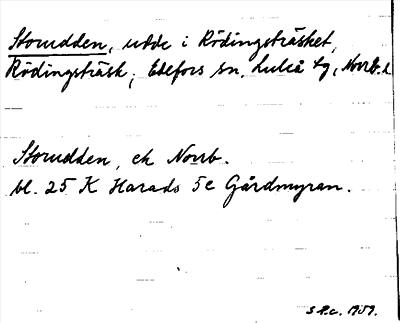 Storudden, udde i Rödingsträsket,
Rödingsträsk, Edefors sn, Luleå tg, Norrb. l
Storudden, ek Norrb.
bl. 25 K Harads 5e Gårdmyran.
1959.